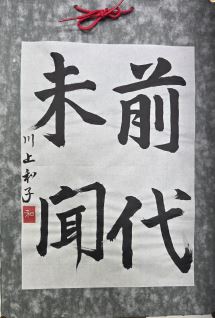 前代
未聞
川上和子
和